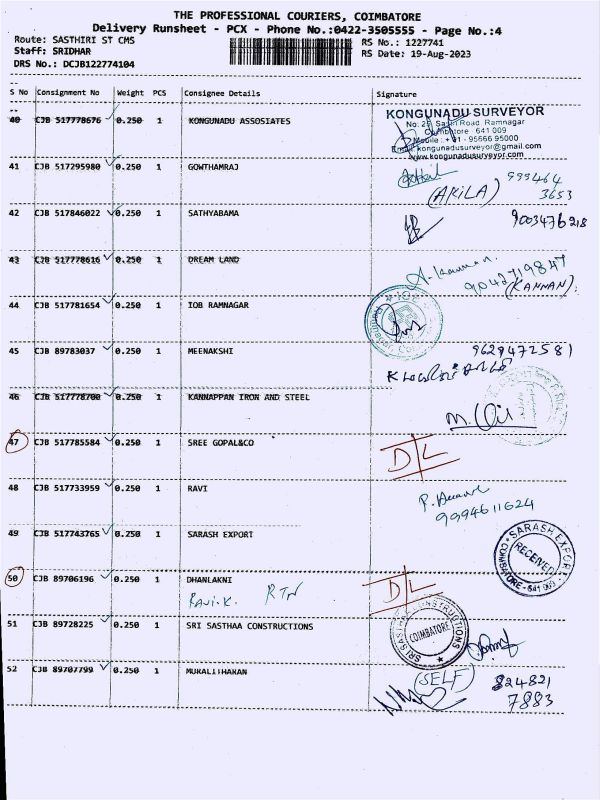 THE PROFESSIONAL COURIERS, COIMBATORE
Delivery Runsheet - PCX - Phone No.:0422-3505555 - Page No.:4
Route: SASTHIRI ST CMS RS No.: 1227741
Staff: SRIDHAR RS Date: 19-Aug-2023
DRS No.: DCJB122774104
S No Consignment No Weight PCS Consignee Details Signature
40 CJB 517778676 0.250 1 KONGUNADU ASSOSIATES
KONGUNADU SURVEYOR
Road, Ramnagar
Coimbatore - 641 009
Mobile : +91 - 95666 95000
Email: kongunadusurveyor@gmail.com
www.kongunadusurveyor.com
41 CJB 517295980 0.250 1 GOWTHAMRAJ
(AKILA) 999464
3653
42 CJB 517846022 0.250 1 SATHYABAMA
9003476218
43 CJB 517778616 0.250 1 DREAM LAND
9042719847
(KANNAN)
44 CJB 517781654 0.250 1 IOB RAMNAGAR
45 CJB 89783037 0.250 1 MEENAKSHI
9629472581
46 CJB 517778700 0.250 1 KANNAPPAN IRON AND STEEL
47 CJB 517785584 0.250 1 SREE GOPAL&CO
D/L
48 CJB 517733959 0.250 1 RAVI
9994611624
49 CJB 517743765 0.250 1 SARASH EXPORT
SARASH EXPORT
RECEIVED
COIMBATORE - 641 009
50 CJB 89706196 0.250 1 DHANLAKNI
Ravi.K RTN
D/L
51 CJB 89728225 0.250 1 SRI SASTHAA CONSTRUCTIONS
SRI SASTHAA CONSTRUCTIONS
COIMBATORE
52 CJB 89707799 0.250 1 MURALITHARAN
(SELF) 824821
7883